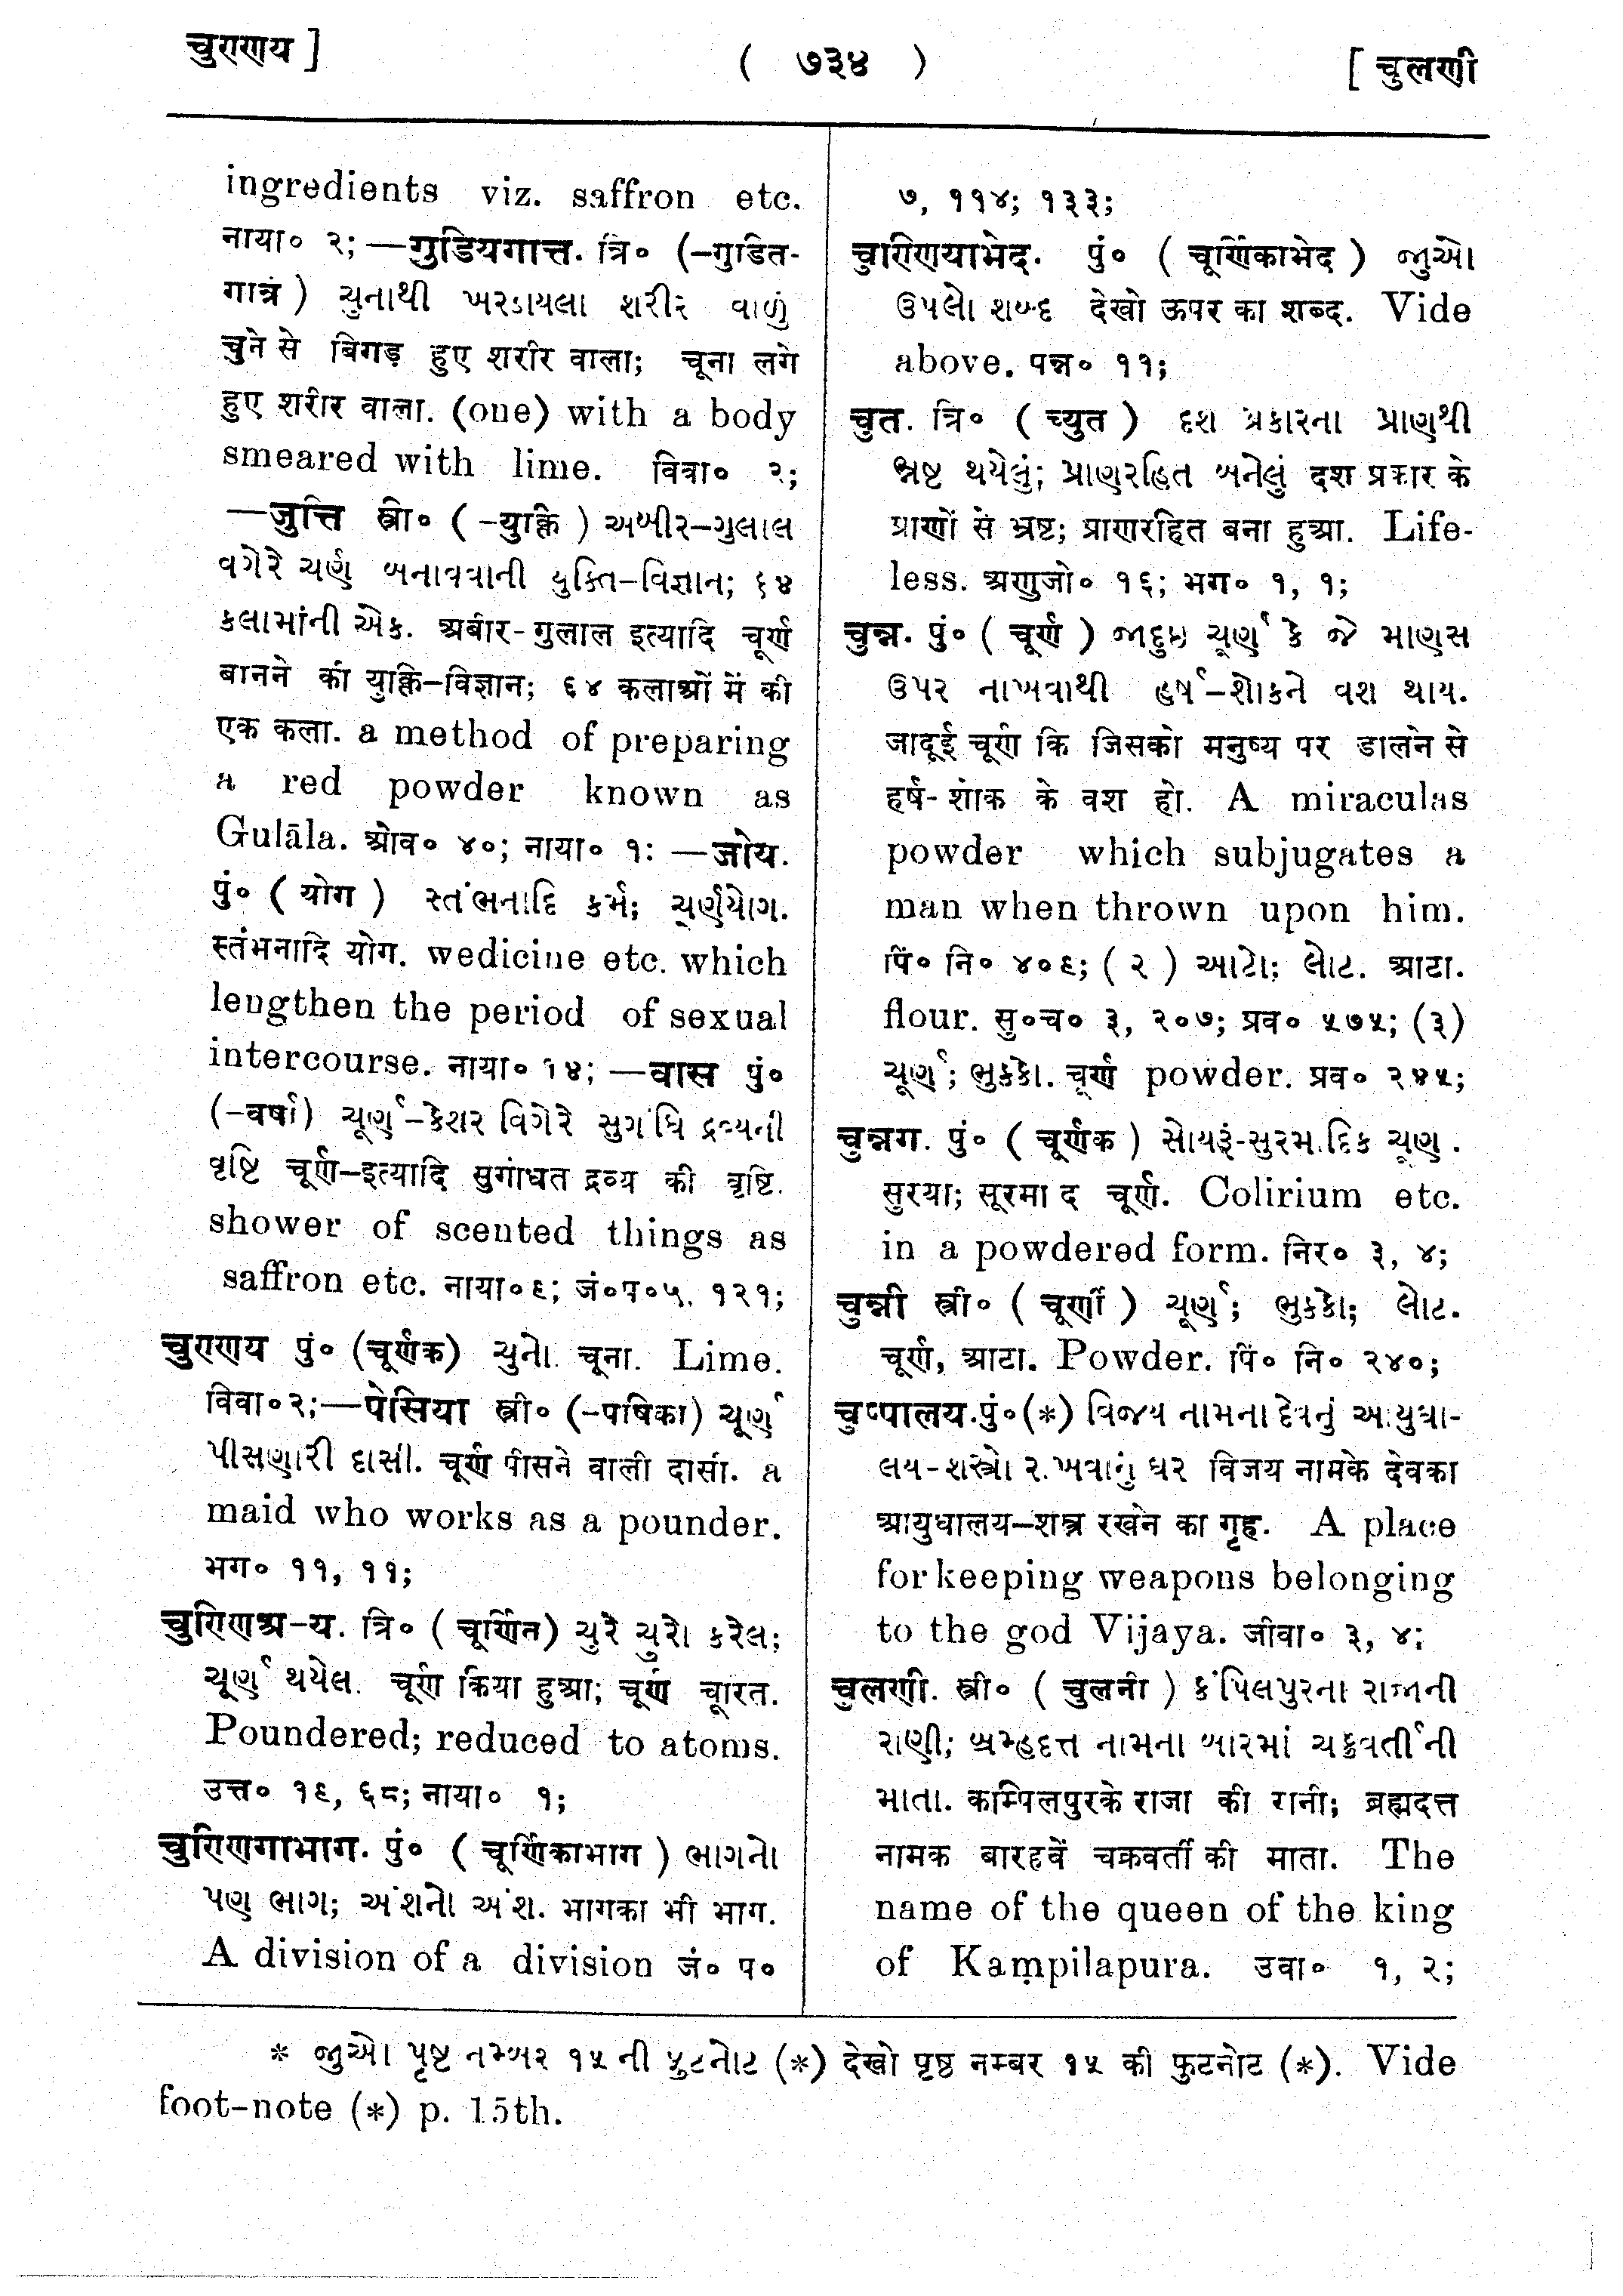 चुण्णय ]
( ७३४ )
[ चुलणी
ingredients viz. saffron etc.
नाया० २; —गुडियगात्त. त्रि० (–गुडित-
गात्रं ) ચુનાથી ખરડાયલા શરીર વાળું
चुने से बिगड़ हुए शरीर वाला; चूना लगे
हुए शरीर वाला. (one) with a body
smeared with lime. विवा० २;
—जुत्ति स्त्री० ( –युक्ति ) અબીર–ગુલાલ
વગેરે ચર્ણ બનાવવાની યુક્તિ–વિજ્ઞાન; ६४
કલામાંની એક. अबीर-गुलाल इत्यादि चूर्ण
बानने की युक्ति–विज्ञान; ६४ कलाओं में की
एक कला. a method of preparing
a red powder known as
Gulāla. ओव० ४०; नाया० १: —जोय.
पुं० ( योग ) સ્તંભનાદિ કર્મ; ચૂર્ણયોગ.
स्तंभनादि योग. wedicine etc. which
lengthen the period of sexual
intercourse. नाया० १४; —वास पुं०
(–वर्षा) ચૂર્ણ–કેશર વિગેરે સુગંધિ દ્રવ્યની
વૃષ્ટિ चूर्ण–इत्यादि सुगंधित द्रव्य की वृष्टि.
shower of scented things as
saffron etc. नाया०९; जं०प०५, १२१;
चुण्णय पुं० (चूर्णक) ચુનો. चूना. Lime.
विवा०२;—पेसिया स्त्री० (–पेषिका) ચૂર્ણ
પીસણારી દાસી. चूर्ण पीसने वाली दासी. a
maid who works as a pounder.
भग० ११, ११;
चुण्णिअ–य. त्रि० ( चूर्णित) ચુરે ચુરો કરેલ;
ચૂર્ણ થયેલ. चूर्ण किया हुआ; चूर्ण चूरित.
Poundered; reduced to atoms.
उत्त० १९, ६८; नाया० १;
चुण्णिगाभाग. पुं० ( चूर्णिकाभाग ) ભાગનો
પણ ભાગ; અંશનો અંશ. भागका भी भाग.
A division of a division जं० प०
७, ११४; १३३;
चुण्णियाभेद. पुं० ( चूर्णिकाभेद ) જુઓ
ઉપલો શબ્દ देखो ऊपर का शब्द. Vide
above. पन्न० ११;
चुत. त्रि० ( च्युत ) દશ પ્રકારના પ્રાણથી
ભ્રષ્ટ થયેલું; પ્રાણરહિત બનેલું दश प्रकार के
प्राणों से भ्रष्ट; प्राणरहित बना हुआ. Life-
less. अणुजो० १६; भग० १, १;
चुन्न. पुं० ( चूर्ण ) જાદુઇ ચૂર્ણ કે જે માણસ
ઉપર નાખવાથી હર્ષ–શોકને વશ થાય.
जादूई चूर्ण कि जिसको मनुष्य पर डालने से
हर्ष-शोक के वश हो. A miraculas
powder which subjugates a
man when thrown upon him.
पिं० नि० ४०९; ( २ ) આટો; લોટ. आटा.
flour. सु०च० ३, २०७; प्रव० ५७५; (३)
ચૂર્ણ; ભુક્કો. चूर्ण powder. प्रव० २४५;
चुन्नग. पुं० ( चूर्णक ) સોયરૂં-સુરમાદિક ચૂર્ણ.
सुरया; सूरमा द चूर्ण. Colirium etc.
in a powdered form. निर० ३, ४;
चुन्नी स्त्री० ( चूर्णी ) ચૂર્ણ; ભુક્કો; લોટ.
चूर्ण, आटा. Powder. पिं० नि० २४०;
चुप्पालय.पुं०(*) વિજય નામના દેવનું આયુધા-
લય-શસ્ત્રો રાખવાનું ઘર विजय नामके देवका
आयुधालय–शस्त्र रखने का गृह. A place
for keeping weapons belonging
to the god Vijaya. जीवा० ३, ४;
चुलणी. स्त्री० ( चुलनी ) કંપિલપુરના રાજાની
રાણી; બ્રમ્હદત્ત નામના બારમાં ચક્રવર્તીની
માતા. काम्पिलपुरके राजा की रानी; ब्रह्मदत्त
नामक बारहवें चक्रवर्ती की माता. The
name of the queen of the king
of Kaṃpilapura. उवा० १, २;
* જુઓ પૃષ્ટ નમ્બર ૧૫ ની ફુટનોટ (*) देखो पृष्ठ नम्बर १५ की फुटनोट (*). Vide
foot-note (*) p. 15th.